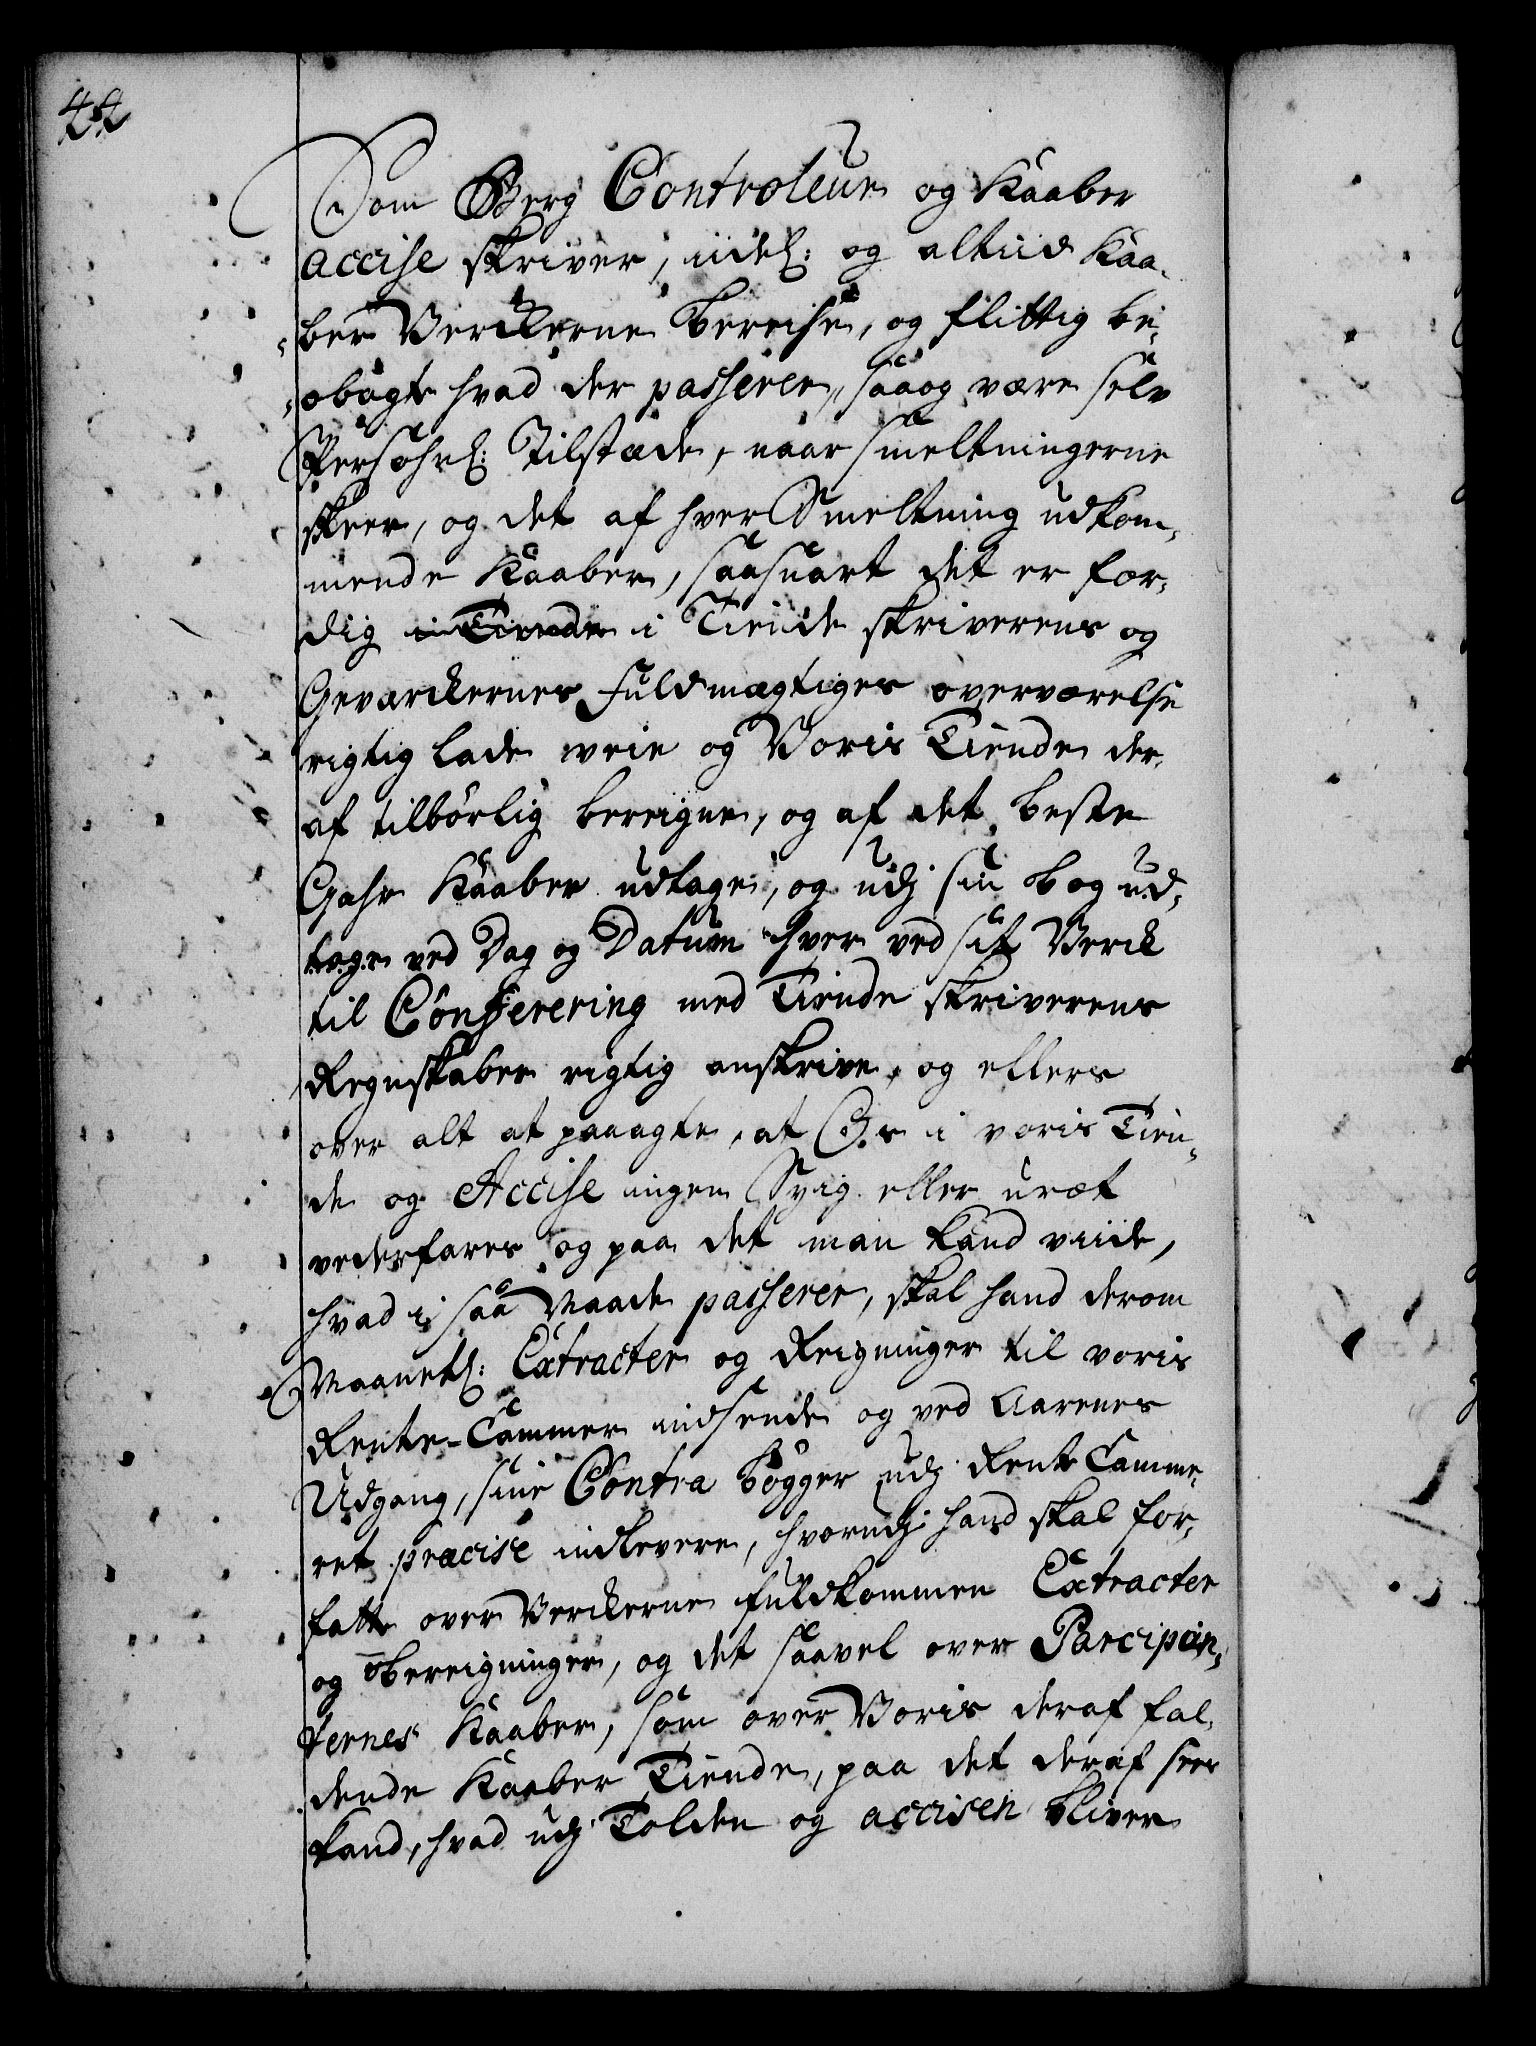 42
Som Berg Controleur og Kaaber
accise skriver, idel: og altiid Kaa-
ber Verckerne bereise, og flittig be-
obagte hvad der passerer, saaog være selv
Persohnl: Tilstæde, naar smeltningerne
skeer, og det af hver Smeltning udkom-
mende Kaaber, saasnart det er fær-
dig i Tiende i Tiende skriverens og
Geværckernes fuldmægtiges overværelse
rigtig lade veie og Voris Tiende der-
af tilbørlig bereigne, og af det beste
Gahr Kaaber udtage, og udj sin bog ud-
tage ved Dag og Datum hver ved sit Verck
til Conferering med Tiende skriverens
Regnskaber rigtig anskrive, og ellers
over alt at paaagte, at Os i voris Tien-
de og Accise ingen Svig eller uræt
vederfares og paa det man kand viide,
hvad i saa Maade passerer, skal hand derom
Maanetl: Extracter og Reigninger til voris
Rente-Cammer indsende og ved Aarenes
Udgang, sine Contra bøgger udj Rente Camme-
ret præcise indlevere, hvorudj hand skal for-
fatte over Verckerne fuldkommen Extracter
og bereigninger, og det saavel over Parcipan-
ternes Kaaber, som over Voris deraf fal-
dende Kaaber Tiende, paa det deraf sees
kand, hvad udj Tolden og accisen bliver